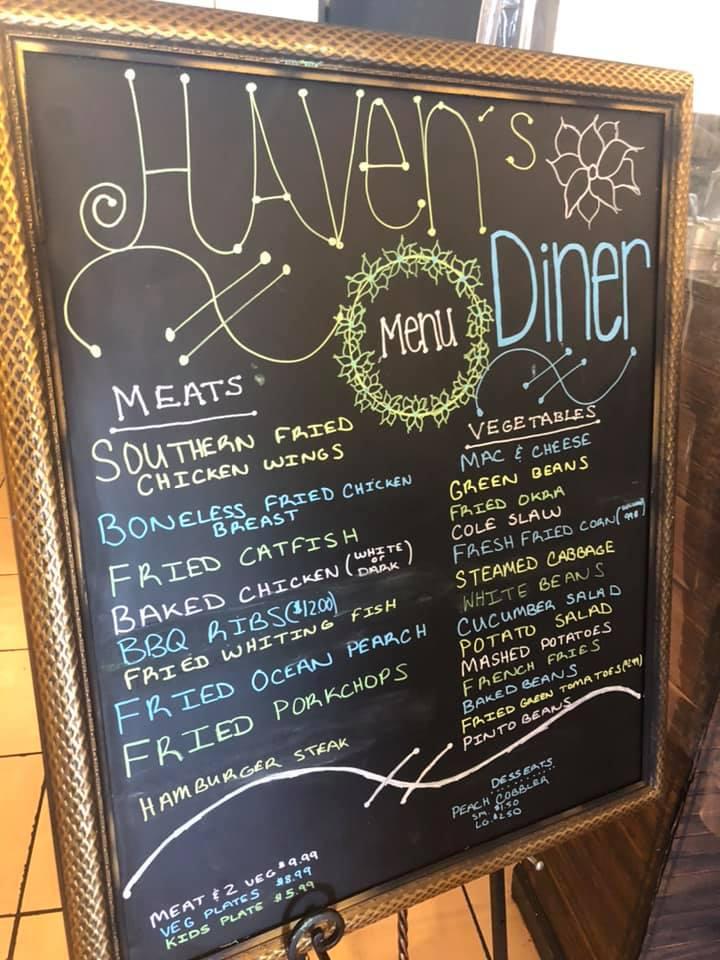 HAVEN'S
Diner
Menu
MEATS
SOUTHERN FRIED
CHICKEN WINGS
BONELESS FRIED CHICKEN
BREAST
FRIED CATFISH
BAKED CHICKEN (WHITE
or
DARK)
BBQ RIBS ($12.00)
FRIED WHITING FISH
FRIED OCEAN PEARCH
FRIED PORKCHOPS
HAMBURGER STEAK
VEGETABLES
MAC & CHEESE
GREEN BEANS
FRIED OKRA
COLE SLAW
FRESH FRIED CORN
STEAMED CABBAGE
WHITE BEANS
CUCUMBER SALAD
POTATO SALAD
MASHED POTATOES
FRENCH FRIES
BAKED BEANS
FRIED GREEN TOMATOES
PINTO BEANS
DESSERTS
PEACH COBBLER
SM. $1.50
LG. $2.50
MEAT & 2 VEG $9.99
VEG PLATES $8.99
KIDS PLATE $5.99